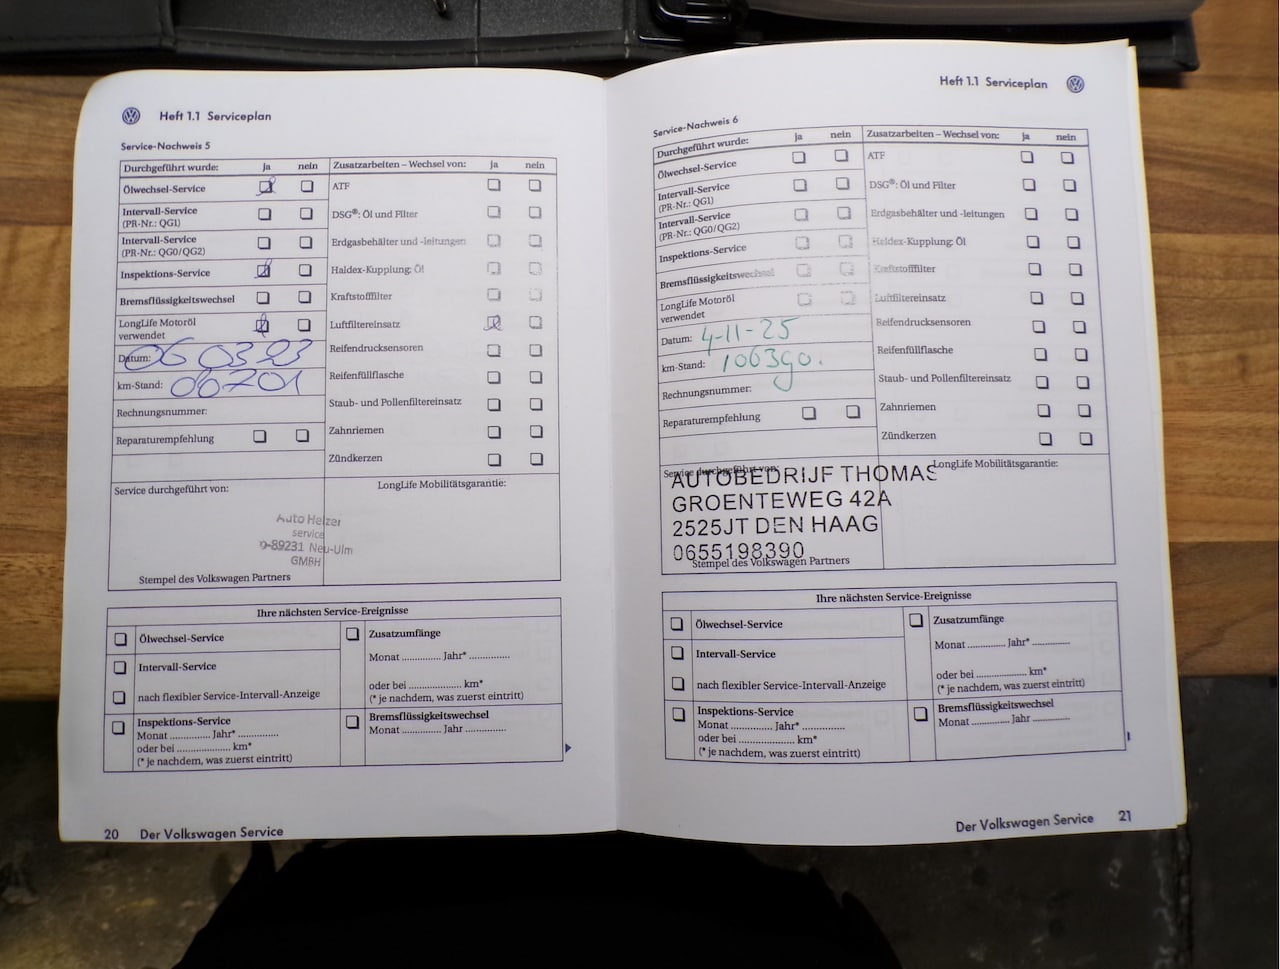 Heft 1.1 Serviceplan
Service-Nachweis 5
Durchgeführt wurde: ja nein Zusatzarbeiten – Wechsel von: ja nein
Ölwechsel-Service ATF
Intervall-Service
(PR-Nr.: QG1) DSG®: Öl und Filter
Intervall-Service
(PR-Nr.: QG0/QG2) Erdgasbehälter und -leitungen
Inspektions-Service Haldex-Kupplung: Öl
Bremsflüssigkeitswechsel Kraftstofffilter
LongLife Motoröl
verwendet Luftfiltereinsatz
Datum: 06 03 23 Reifendrucksensoren
km-Stand: 06701 Reifenfüllflasche
Rechnungsnummer: Staub- und Pollenfiltereinsatz
Reparaturempfehlung Zahnriemen
Zündkerzen
Service durchgeführt von: LongLife Mobilitätsgarantie:
Auto Helzer
service
D-89231 Neu-Ulm
GMBH
Stempel des Volkswagen Partners
Ihre nächsten Service-Ereignisse
Ölwechsel-Service Zusatzumfänge
Monat .............. Jahr* ..............
Intervall-Service
oder bei .................. km*
nach flexibler Service-Intervall-Anzeige (* je nachdem, was zuerst eintritt)
Inspektions-Service Bremsflüssigkeitswechsel
Monat .............. Jahr* .............. Monat .............. Jahr ..............
oder bei .................. km*
(* je nachdem, was zuerst eintritt)
20 Der Volkswagen Service
Heft 1.1 Serviceplan
Service-Nachweis 6
Durchgeführt wurde: ja nein Zusatzarbeiten – Wechsel von: ja nein
Ölwechsel-Service ATF
Intervall-Service
(PR-Nr.: QG1) DSG®: Öl und Filter
Intervall-Service
(PR-Nr.: QG0/QG2) Erdgasbehälter und -leitungen
Inspektions-Service Haldex-Kupplung: Öl
Bremsflüssigkeitswechsel Kraftstofffilter
LongLife Motoröl
verwendet Luftfiltereinsatz
Datum: 4-11-25 Reifendrucksensoren
km-Stand: 106390. Reifenfüllflasche
Rechnungsnummer: Staub- und Pollenfiltereinsatz
Reparaturempfehlung Zahnriemen
Zündkerzen
Service durchgeführt von: LongLife Mobilitätsgarantie:
AUTOBEDRIJF THOMAS
GROENTEWEG 42A
2525JT DEN HAAG
0655198390
Stempel des Volkswagen Partners
Ihre nächsten Service-Ereignisse
Ölwechsel-Service Zusatzumfänge
Monat .............. Jahr* ..............
Intervall-Service
oder bei .................. km*
nach flexibler Service-Intervall-Anzeige (* je nachdem, was zuerst eintritt)
Inspektions-Service Bremsflüssigkeitswechsel
Monat .............. Jahr* .............. Monat .............. Jahr ..............
oder bei .................. km*
(* je nachdem, was zuerst eintritt)
Der Volkswagen Service 21